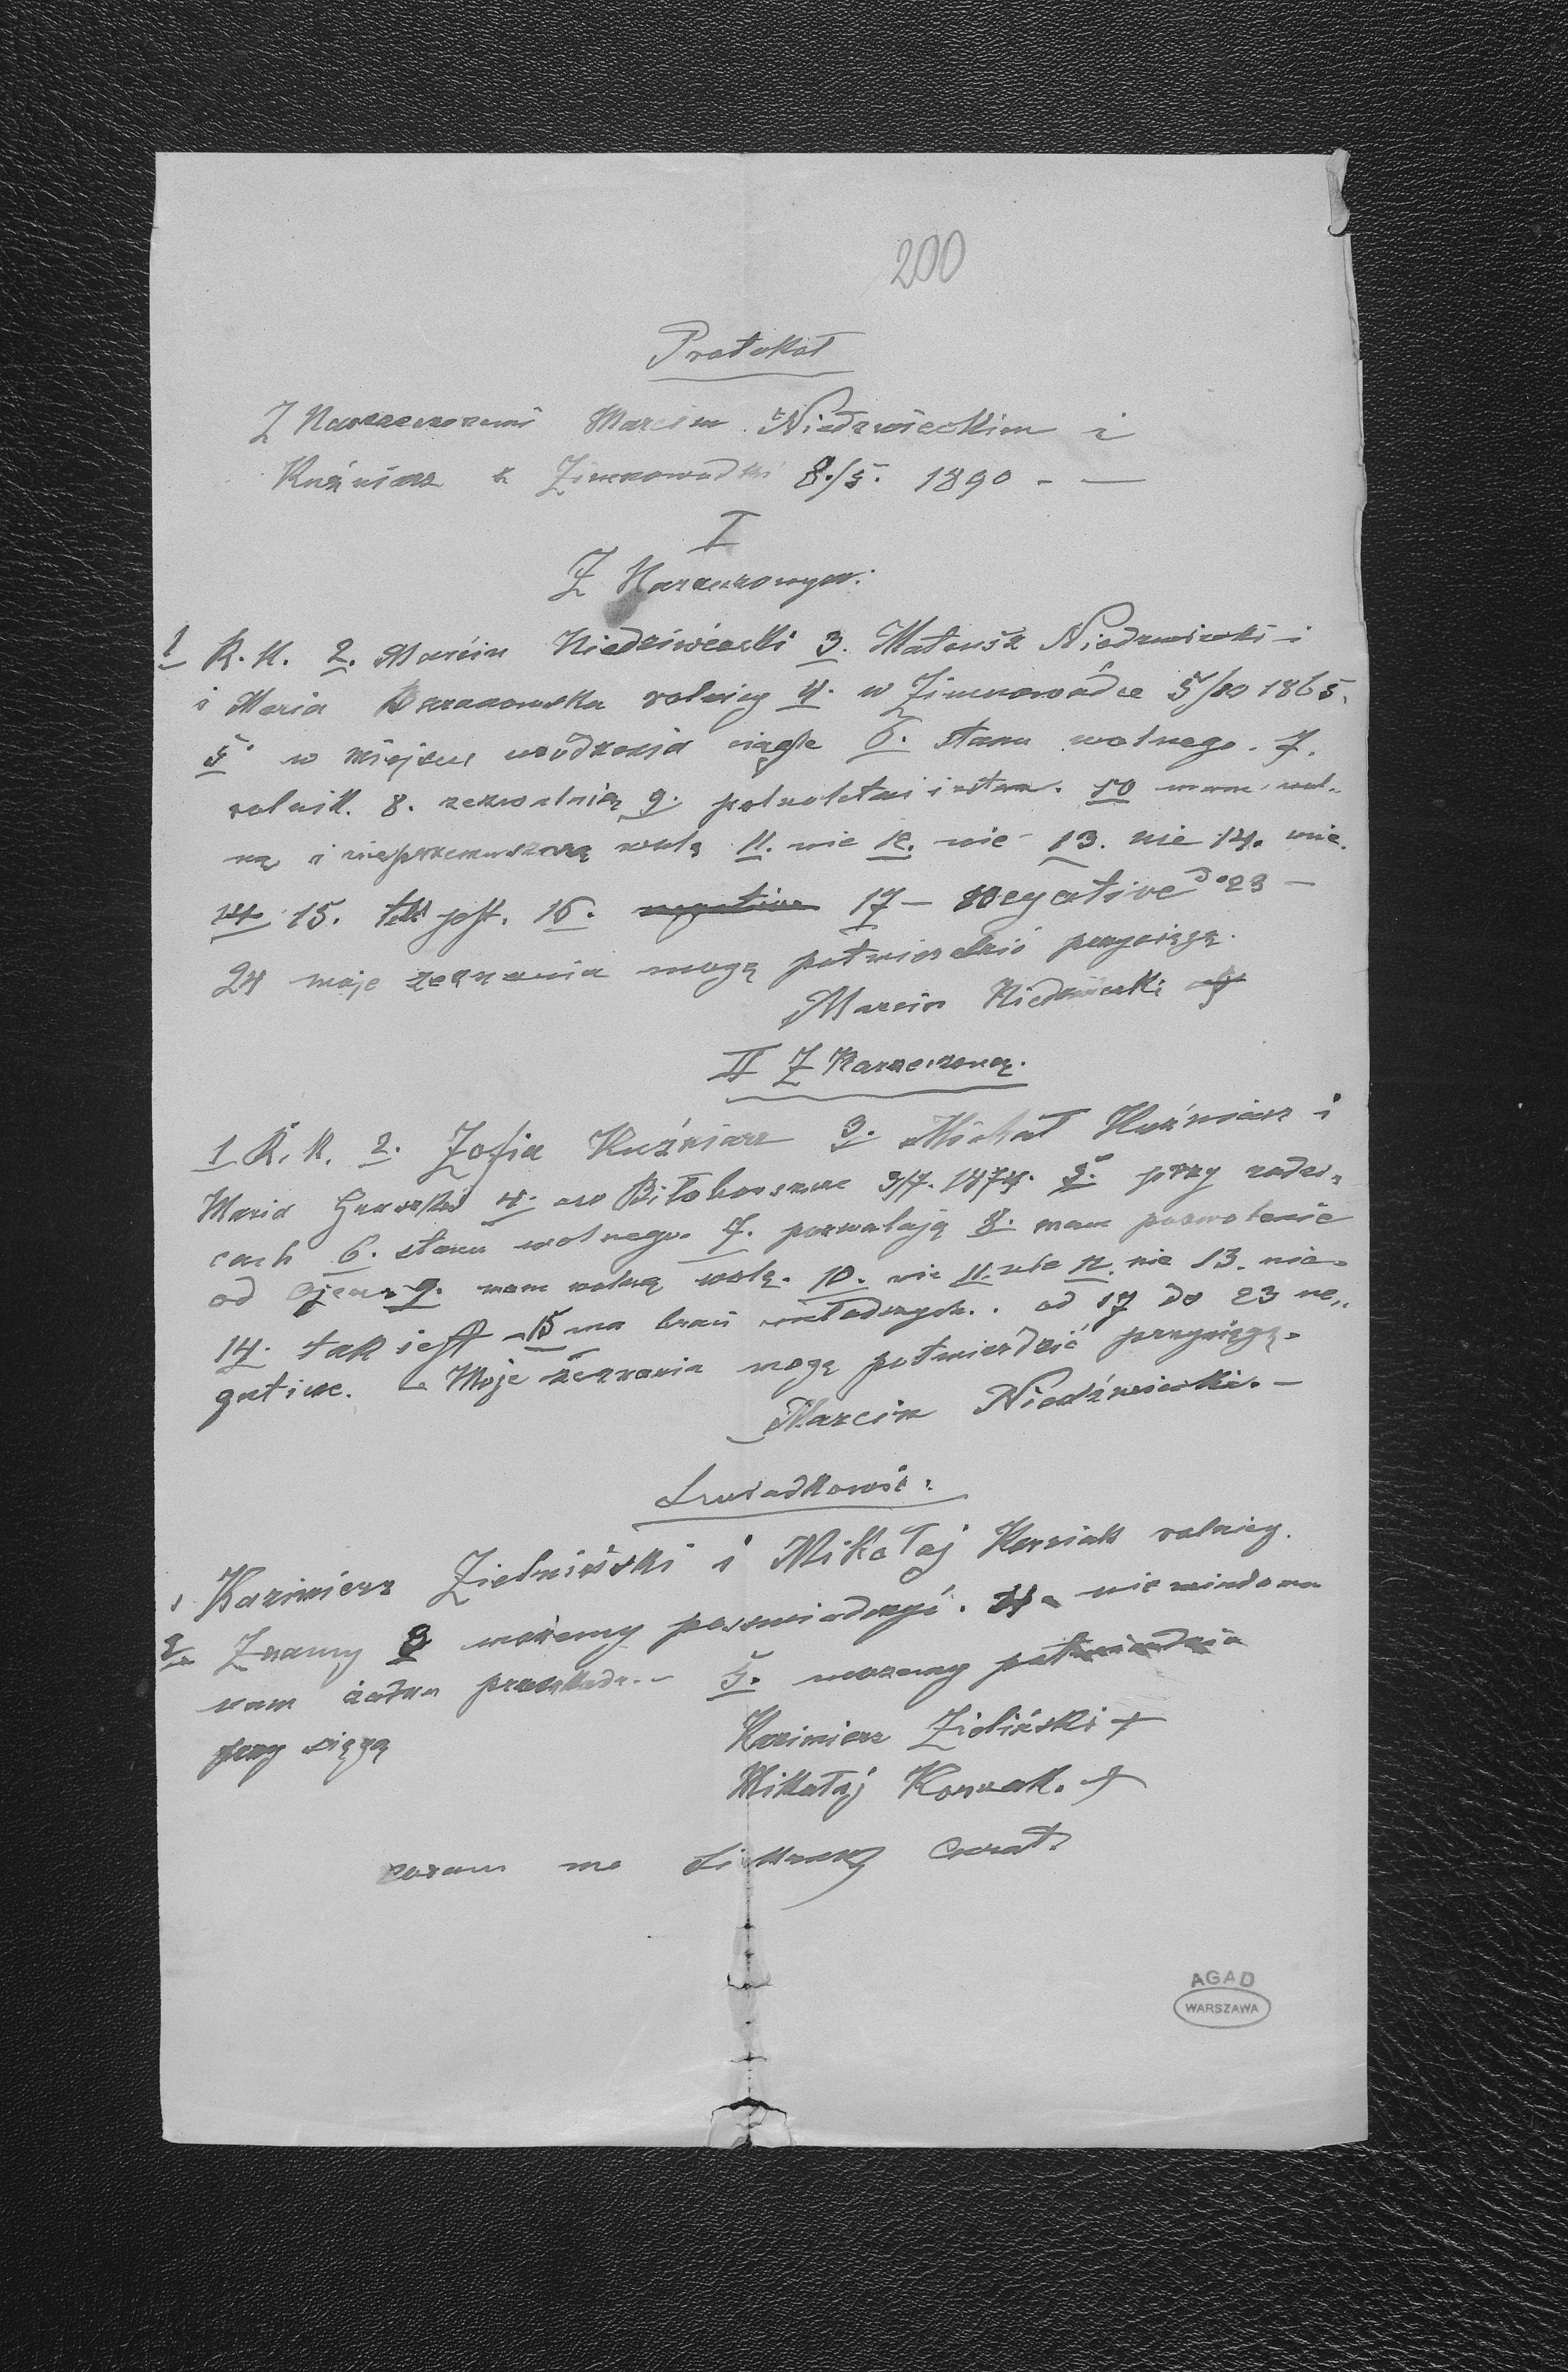 200
Protokół
Z Narzeczonemi Marcim Niedzwieckim i
Kuźniarz z Zimnowodki 8./5. 1890 - —
I
Z Narzeczonym:
1 R.K. 2. Marcin Niedziwiecki 3. Mateusz Niedzwiecki i
i Maria rolnicy 4. w Zimnowódce 5/10 1865.
5 w miejscu urodzenia ciągle 6. stanu wolnego. 7.
rolnik. 8. zezwalnią 9. pełnoletni i 10 mam wol-
ną i nieprzemuszoną wolę 11. nie 12. nie 13. nie 14. nie.
14 15. tak jest. 16. negative 17 — negative do 23 —
24 moje zeznania mogę potwierdzić przysięgą.
Marcin Niedzwiecki
II Z Narzeczoną.
1 R.K. 2. Zofia Kuźniarz 3. Michał Kuźniarz i
Maria 4. w 3/7. 1874. 5. przy rodzi-
cach 6. stanu wolnego. 7. pozwalają 8. mam pozwolenie
od Ojca 9. mam wolną wolę. 10. nie 11. nie 12. nie 13. nie.
14. tak jest — 15 ma braci młodszych. . od 17 do 23 ne„
gative. — Moje zeznania mogę potwierdzić przysięgą.
Marcin Niedźwiecki. —
Swiadkowie:
1 Kazimierz Zielniński i Mikołaj rolnicy.
2. Znamy 3 możemy poswiadczyć. 4. nie wiadoma
nam żadna przeszkoda. — 5. mozemy potwierdzić
przysięgą
Kazimierz Zieliński +
Mikołaj Korzak. +
coram me
AGAD
WARSZAWA